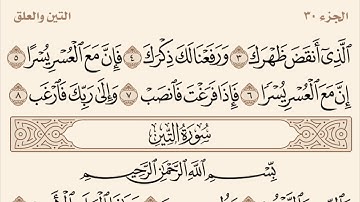 الجزء ٣٠
التين والعلق
ٱلَّذِىٓ أَنقَضَ ظَهْرَكَ ٣ وَرَفَعْنَا لَكَ ذِكْرَكَ ٤ فَإِنَّ مَعَ ٱلْعُسْرِ يُسْرًا ٥
إِنَّ مَعَ ٱلْعُسْرِ يُسْرًا ٦ فَإِذَا فَرَغْتَ فَٱنصَبْ ٧ وَإِلَىٰ رَبِّكَ فَٱرْغَب ٨
سُورَةُ التِّينِ
بِسْمِ ٱللَّهِ ٱلرَّحْمَٰنِ ٱلرَّحِيمِ